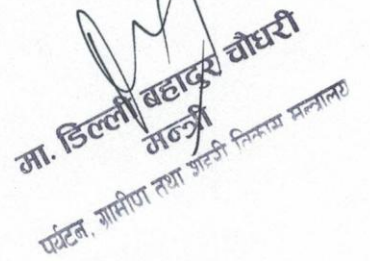 मा. डिल्ली बहादुर चौधरी
मन्त्री
पर्यटन, ग्रामीण तथा शहरी विकास मन्त्रालय